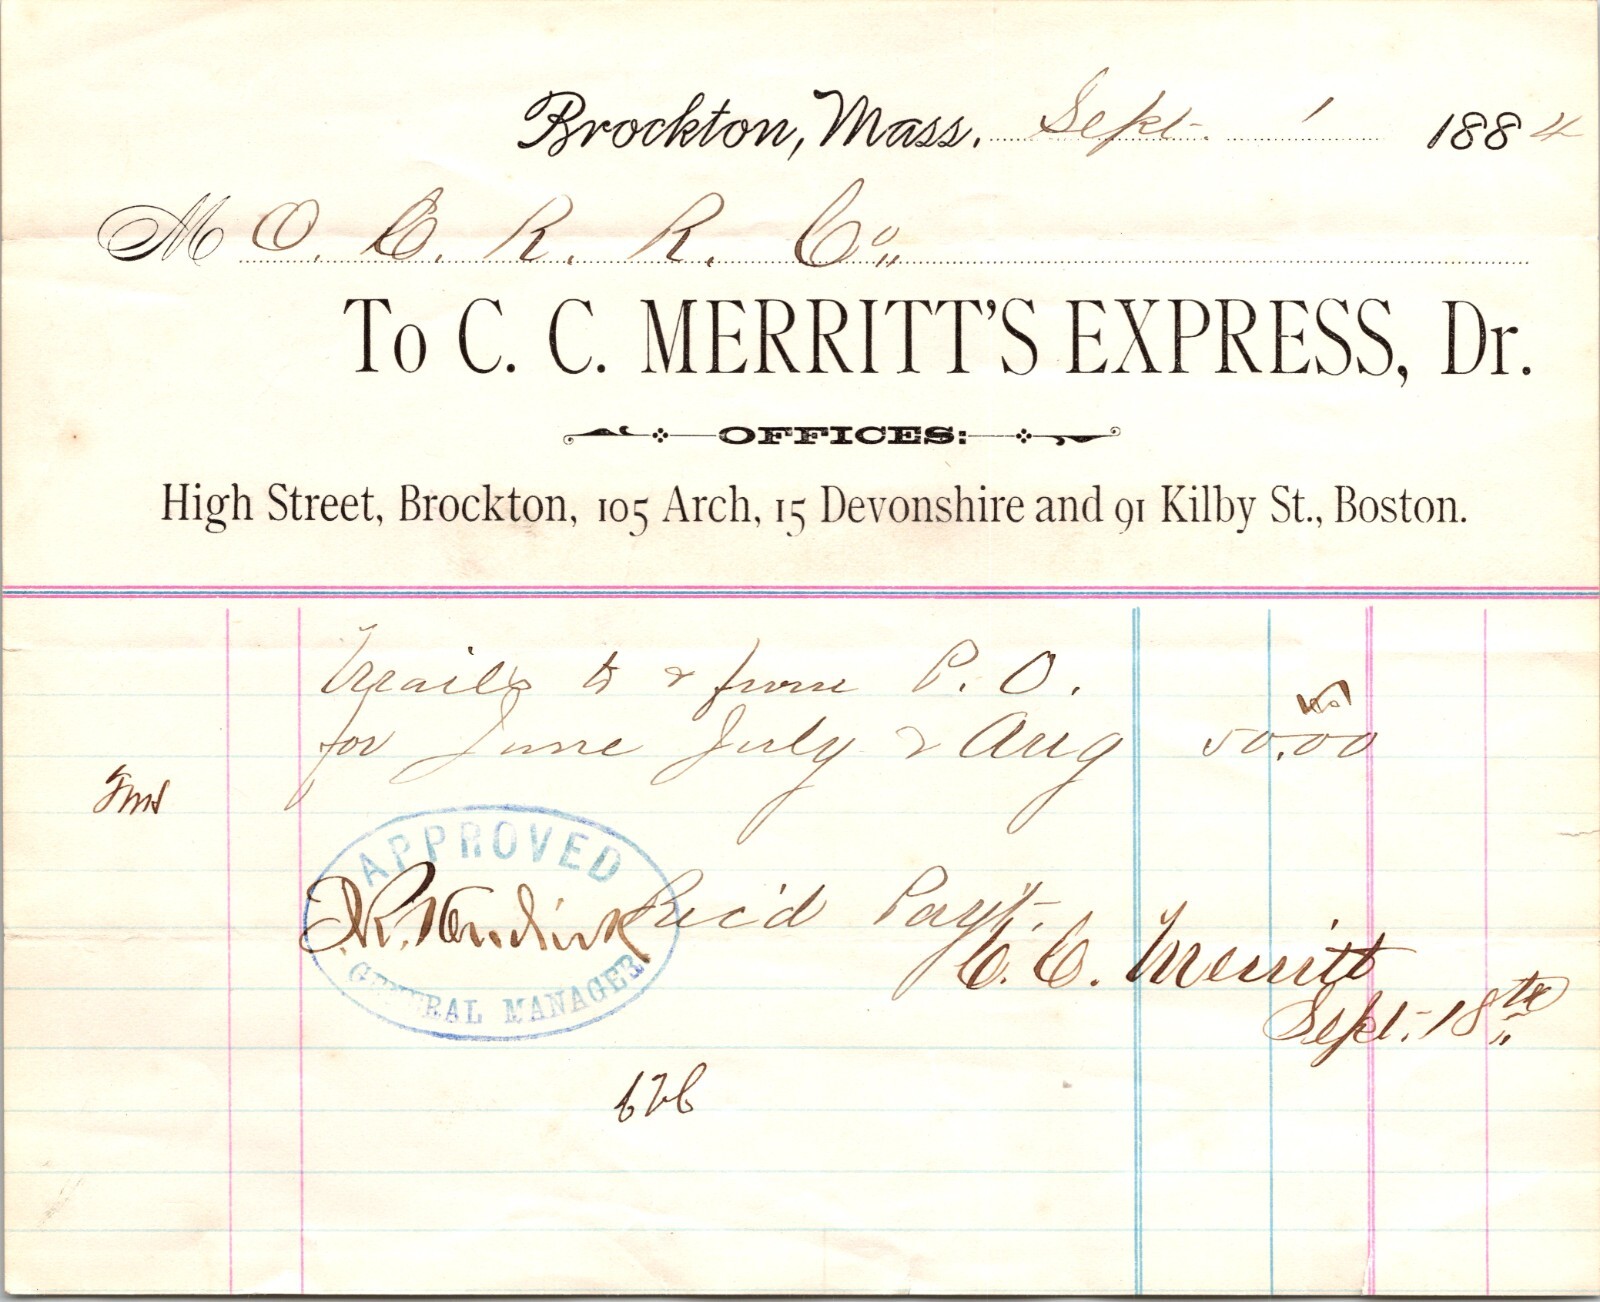 Brockton, Mass. Sept. 1 1884
M O. C. R. R. Co.
To C. C. MERRITT'S EXPRESS, Dr.
OFFICES:
High Street, Brockton, 105 Arch, 15 Devonshire and 91 Kilby St., Boston.
Mails to & from P. O.
for June July & Aug 50.00
APPROVED
J. R. Kendrick
GENERAL MANAGER
Rec'd Payt.
C. C. Merritt
Sept. 18th
626